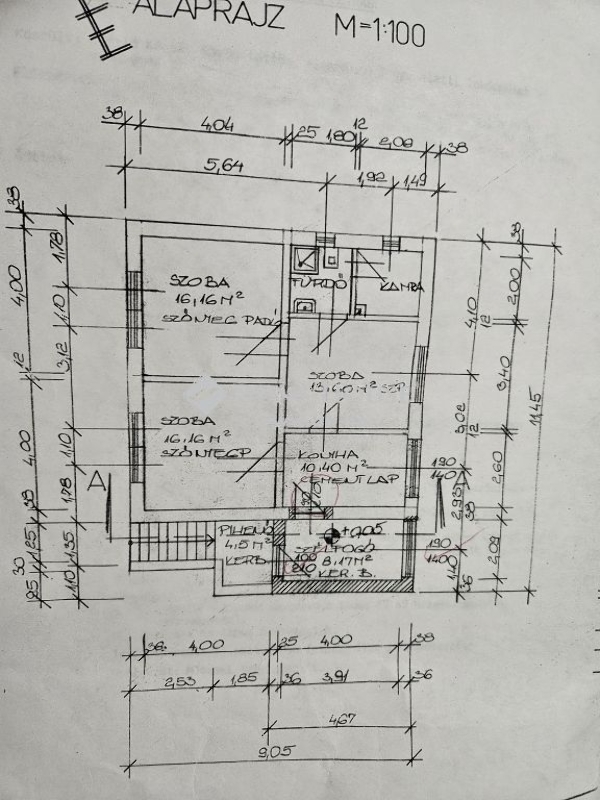 ALAPRAJZ M=1:100
38 4,04 25 1,80 12 2,08 38
5,64 1,92 1,49
SZOBA
16,16 M²
SZŐNYEG PADL
FÜRDŐ
KAMRA
SZOBA
13,60 M² SZP.
SZOBA
16,16 M²
SZŐNYEGP
KONYHA
10,40 M²
CEMENTLAP
PIHENŐ
4,5 M²
KERB.
+0,05
SZÉLFOGÓ
8,17 M²
KER. B.
90
210
100
210
190
140
190
140
A
A
38 4,00 12 4,00 38 1,25 30 25
1,78 1,10 3,12 1,10 1,78 1,35 1,10
4,10 12 5,02 12 2,93 1,10 36
38 2,00 3,40 2,60 2,09
11,45
38 4,00 25 4,00 38
2,53 1,85 36 3,91 36
4,67
9,05